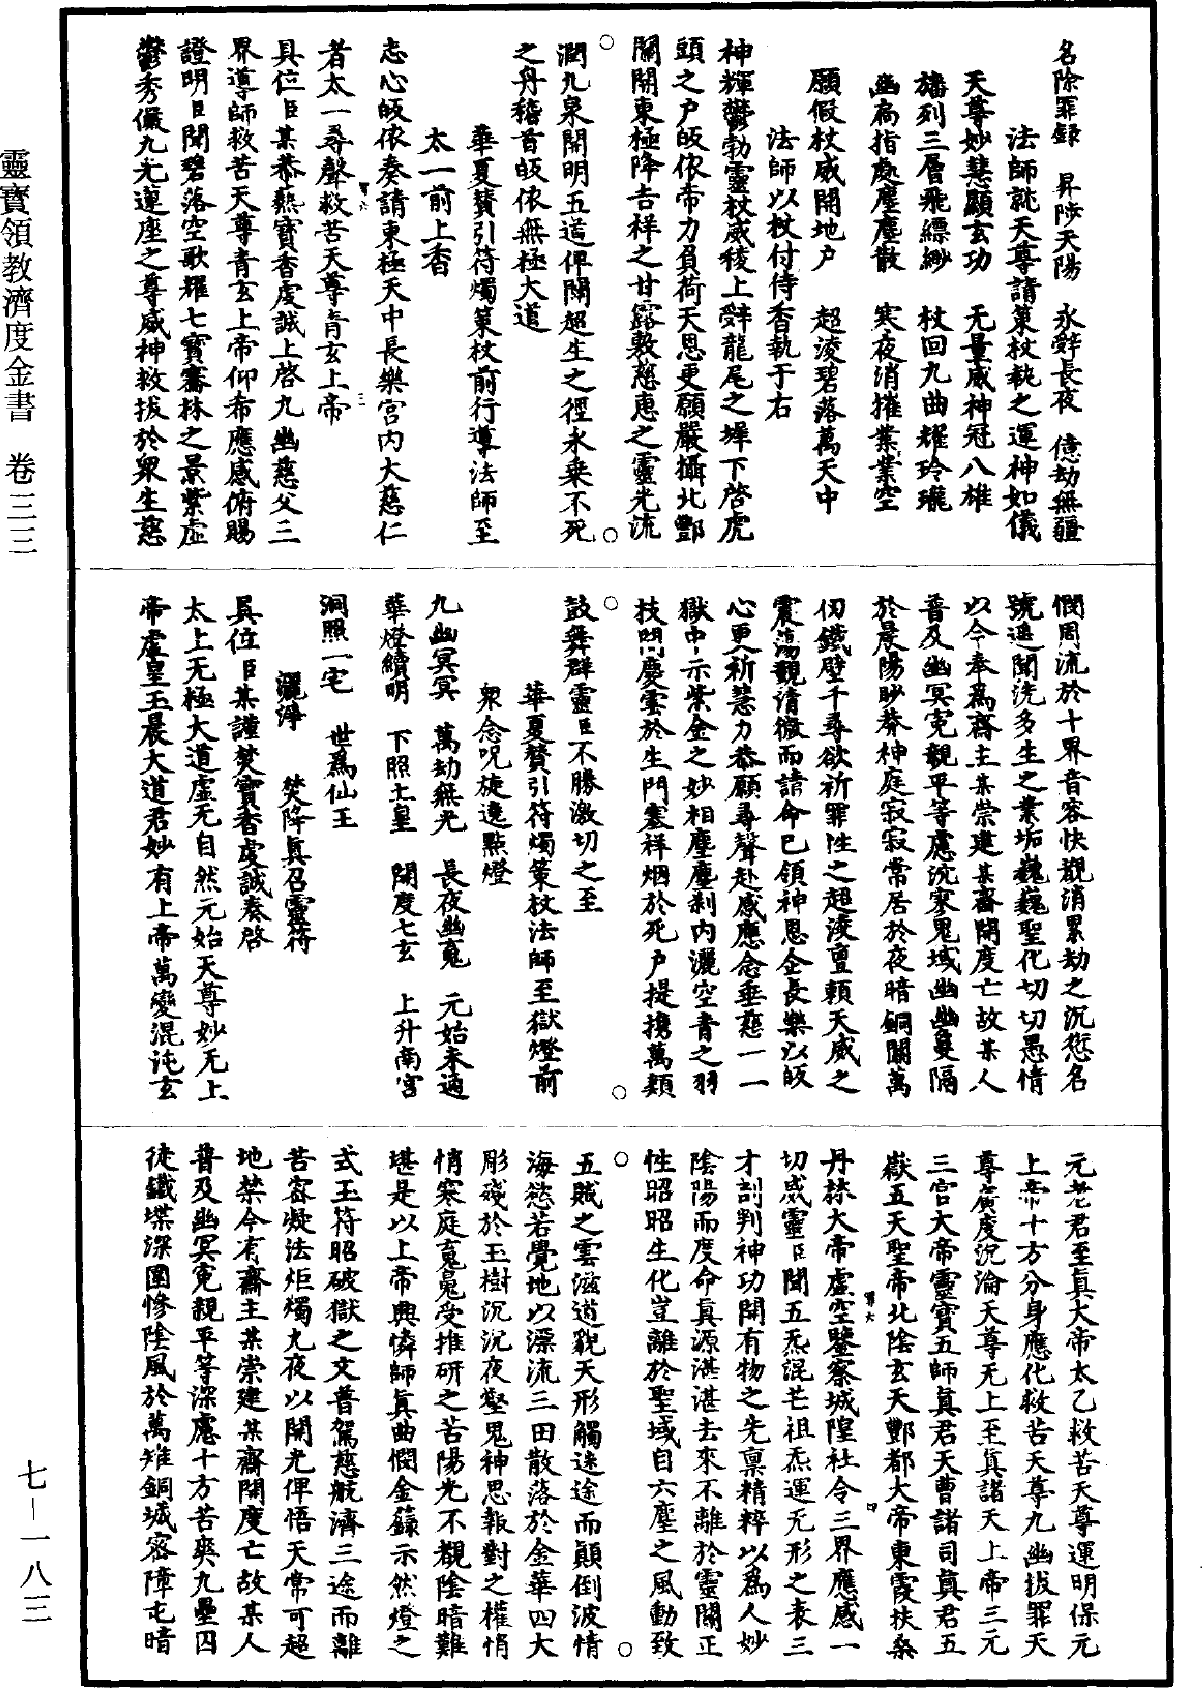 名除罪錄　昇陟天陽　永辭長夜　億劫無疆
法師詭天尊請策杖執之運神如儀
天尊妙慧顯玄功　无量威神冠八雄
旛列三層飛縹緲　杖回九曲耀玲瓏
幽扃指處塵塵散　寒夜消摧業業空
願假杖威開地户　超淩碧落萬天中
法師以杖付侍香執于右
神輝鬱勃靈杖威稜上辭龍尾之墀下啓虎
頭之户皈依帝力負荷天恩更願嚴攝北酆
關開東極降吉祥之甘露敷慈惠之靈光流
潤九泉開明五道俾闢超生之徑永乗不死
之丹稽首皈依無極大道
華夏贊引符燭策杖前行導法師至
太一前上香
志心皈依奏請東極天中長樂宫内大慈仁
者太一尋聲救苦天尊青玄上帝
具位臣某恭爇寶香虔誠上啓九幽慈父三
界導師救苦天尊青玄上帝仰希應感俯賜
證明臣聞碧落空歌耀七寶騫林之景紫虚
鬱秀儼九光蓮座之尊威神救拔於衆生慈
憫周流於十界音容快覩消累劫之沉愆名
號遥聞洗多生之業垢巍巍聖化切切愚情
以今奉爲齋主某崇建某齋開度亡故某人
普及幽冥寃親平等慮沉寒鬼域幽幽敻隔
於晨陽眇莽神庭寂寂常居於夜暗銅關萬
仞鐵壁千尋欲祈罪性之超淩亶頼天威之
震蕩覩清微而請命已領神恩企長樂以皈
心更祈慧力恭願尋聲赴感應念垂慈一一
獄中示紫金之妙相塵塵剎内灑空青之羽
技閃慶雲於生門塞祥烟於死户提携萬類
鼓舞群靈臣不勝激切之至
華夏贊引符燭策杖法師至獄燈前
衆念呪旋遶點燈
九幽冥冥　萬劫無光　長夜幽魂　元始未通
華燈續明　下照土皇　開度七玄　上升南宫
洞照一宅　世爲仙王
灑淨　　焚降真召靈符
具位臣某謹焚寶香虔誠奏啓
太上无極大道虚无自然元始天尊妙无上
帝虚皇玉晨大道君妙有上帝萬變混沌玄
元老君至真大帝太乙救苦天尊運明保元
上帝十方分身應化救苦天尊九幽拔罪天
尊廣度沉淪天尊无上至真諸天上帝三元
三宫大帝靈寶五師真君天曹諸司真君五
嶽五天聖帝北陰玄天酆都大帝東霞扶桑
丹林大帝虚空鑒察城隍社令三界應感一
切威靈臣聞五炁混芒祖炁運无形之表三
才剖判神功開有物之先禀精粹以爲人妙
陰陽而度命真源湛湛去來不離於靈關正
性昭昭生化豈離於聖域自六塵之風動致
五賊之雲滋道貌天形觸迷途而顛倒波情
海慾若覺地以漂流三田散落於金華四大
彫殘於玉樹沉沉夜壑鬼神思報對之權悄
悄寒庭䰟魄受推研之苦陽光不覩陰暗難
堪是以上帝興憐師真曲憫金籙示然燈之
式玉符昭破獄之文普駕慈航濟三途而離
苦密凝法炬燭九夜以開光俾悟天常可超
地禁今有齋主某崇建某齋開度亡故某人
普及幽冥寃親平等深慮十方苦爽九壘囚
徒鐵堞深圍慘陰風於萬雉銅城密障屯暗
靈寶領教濟度金書　卷三二
七－一八三